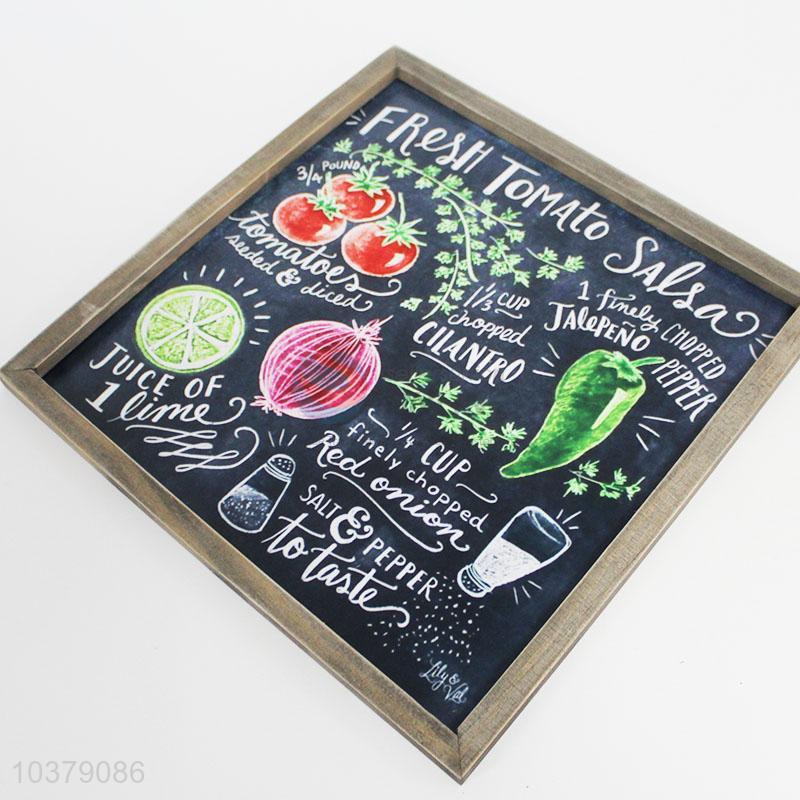 FRESH TOMATO SALSA
3/4 POUND
tomatoes
seeded & diced
1/3 CUP
chopped
CILANTRO
1 finely CHOPPED
JALEPEÑO PEPPER
JUICE OF
1 lime
1/4 CUP
finely chopped
Red onion
SALT & PEPPER
to taste
Lily & Val
10379086